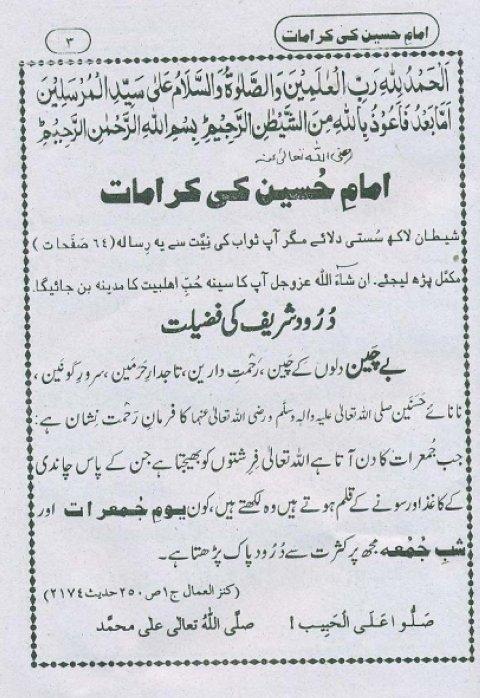 امامِ حسین کی کرامات
۳
اَلْحَمْدُ لِلّٰہِ رَبِّ الْعٰلَمِیْنَ وَالصَّلٰوۃُ وَالسَّلَامُ عَلٰی سَیِّدِ الْمُرْسَلِیْنَ
اَمَّا بَعْدُ فَاَعُوْذُ بِاللّٰہِ مِنَ الشَّیْطٰنِ الرَّجِیْمِ ؕ بِسْمِ اللّٰہِ الرَّحْمٰنِ الرَّحِیْمِ ؕ
رضی اللہ تعالیٰ عنہ
امامِ حُسین کی کرامات
شیطان لاکھ سُستی دلائے مگر آپ ثواب کی نیّت سے یہ رِسالہ (۶۴ صَفحات)
مکمَّل پڑھ لیجئے۔ ان شاءَ اللہ عزوجل آپ کا سینہ حُبِّ اھلبیت کا مدینہ بن جائیگا۔
دُرُود شریف کی فضیلت
بے چَین دلوں کے چَین، رَحْمتِ دارین، تاجدارِ حَرَمَین، سرورِ کَونَین،
نانائے حَسَنَین صلی اللہ تعالیٰ علیہ والہٖ وسلّم و رضی اللہ تعالیٰ عنہما کا فرمانِ رَحْمت نِشان ہے:
جب جُمعرات کا دن آتا ہے اللہ تعالیٰ فِرِشتوں کو بھیجتا ہے جن کے پاس چاندی
کے کاغذ اور سونے کے قلم ہوتے ہیں وہ لکھتے ہیں، کون یومِ جُمعرات اور
شبِ جُمُعہ مجھ پر کثرت سے دُرُودِ پاک پڑھتا ہے۔
(کنز العمال ج۱ ص۲۵۰ حدیث ۲۱۷۴)
صَلُّوا عَلَی الْحَبِیب! صلَّی اللہُ تعالٰی علٰی محمَّد